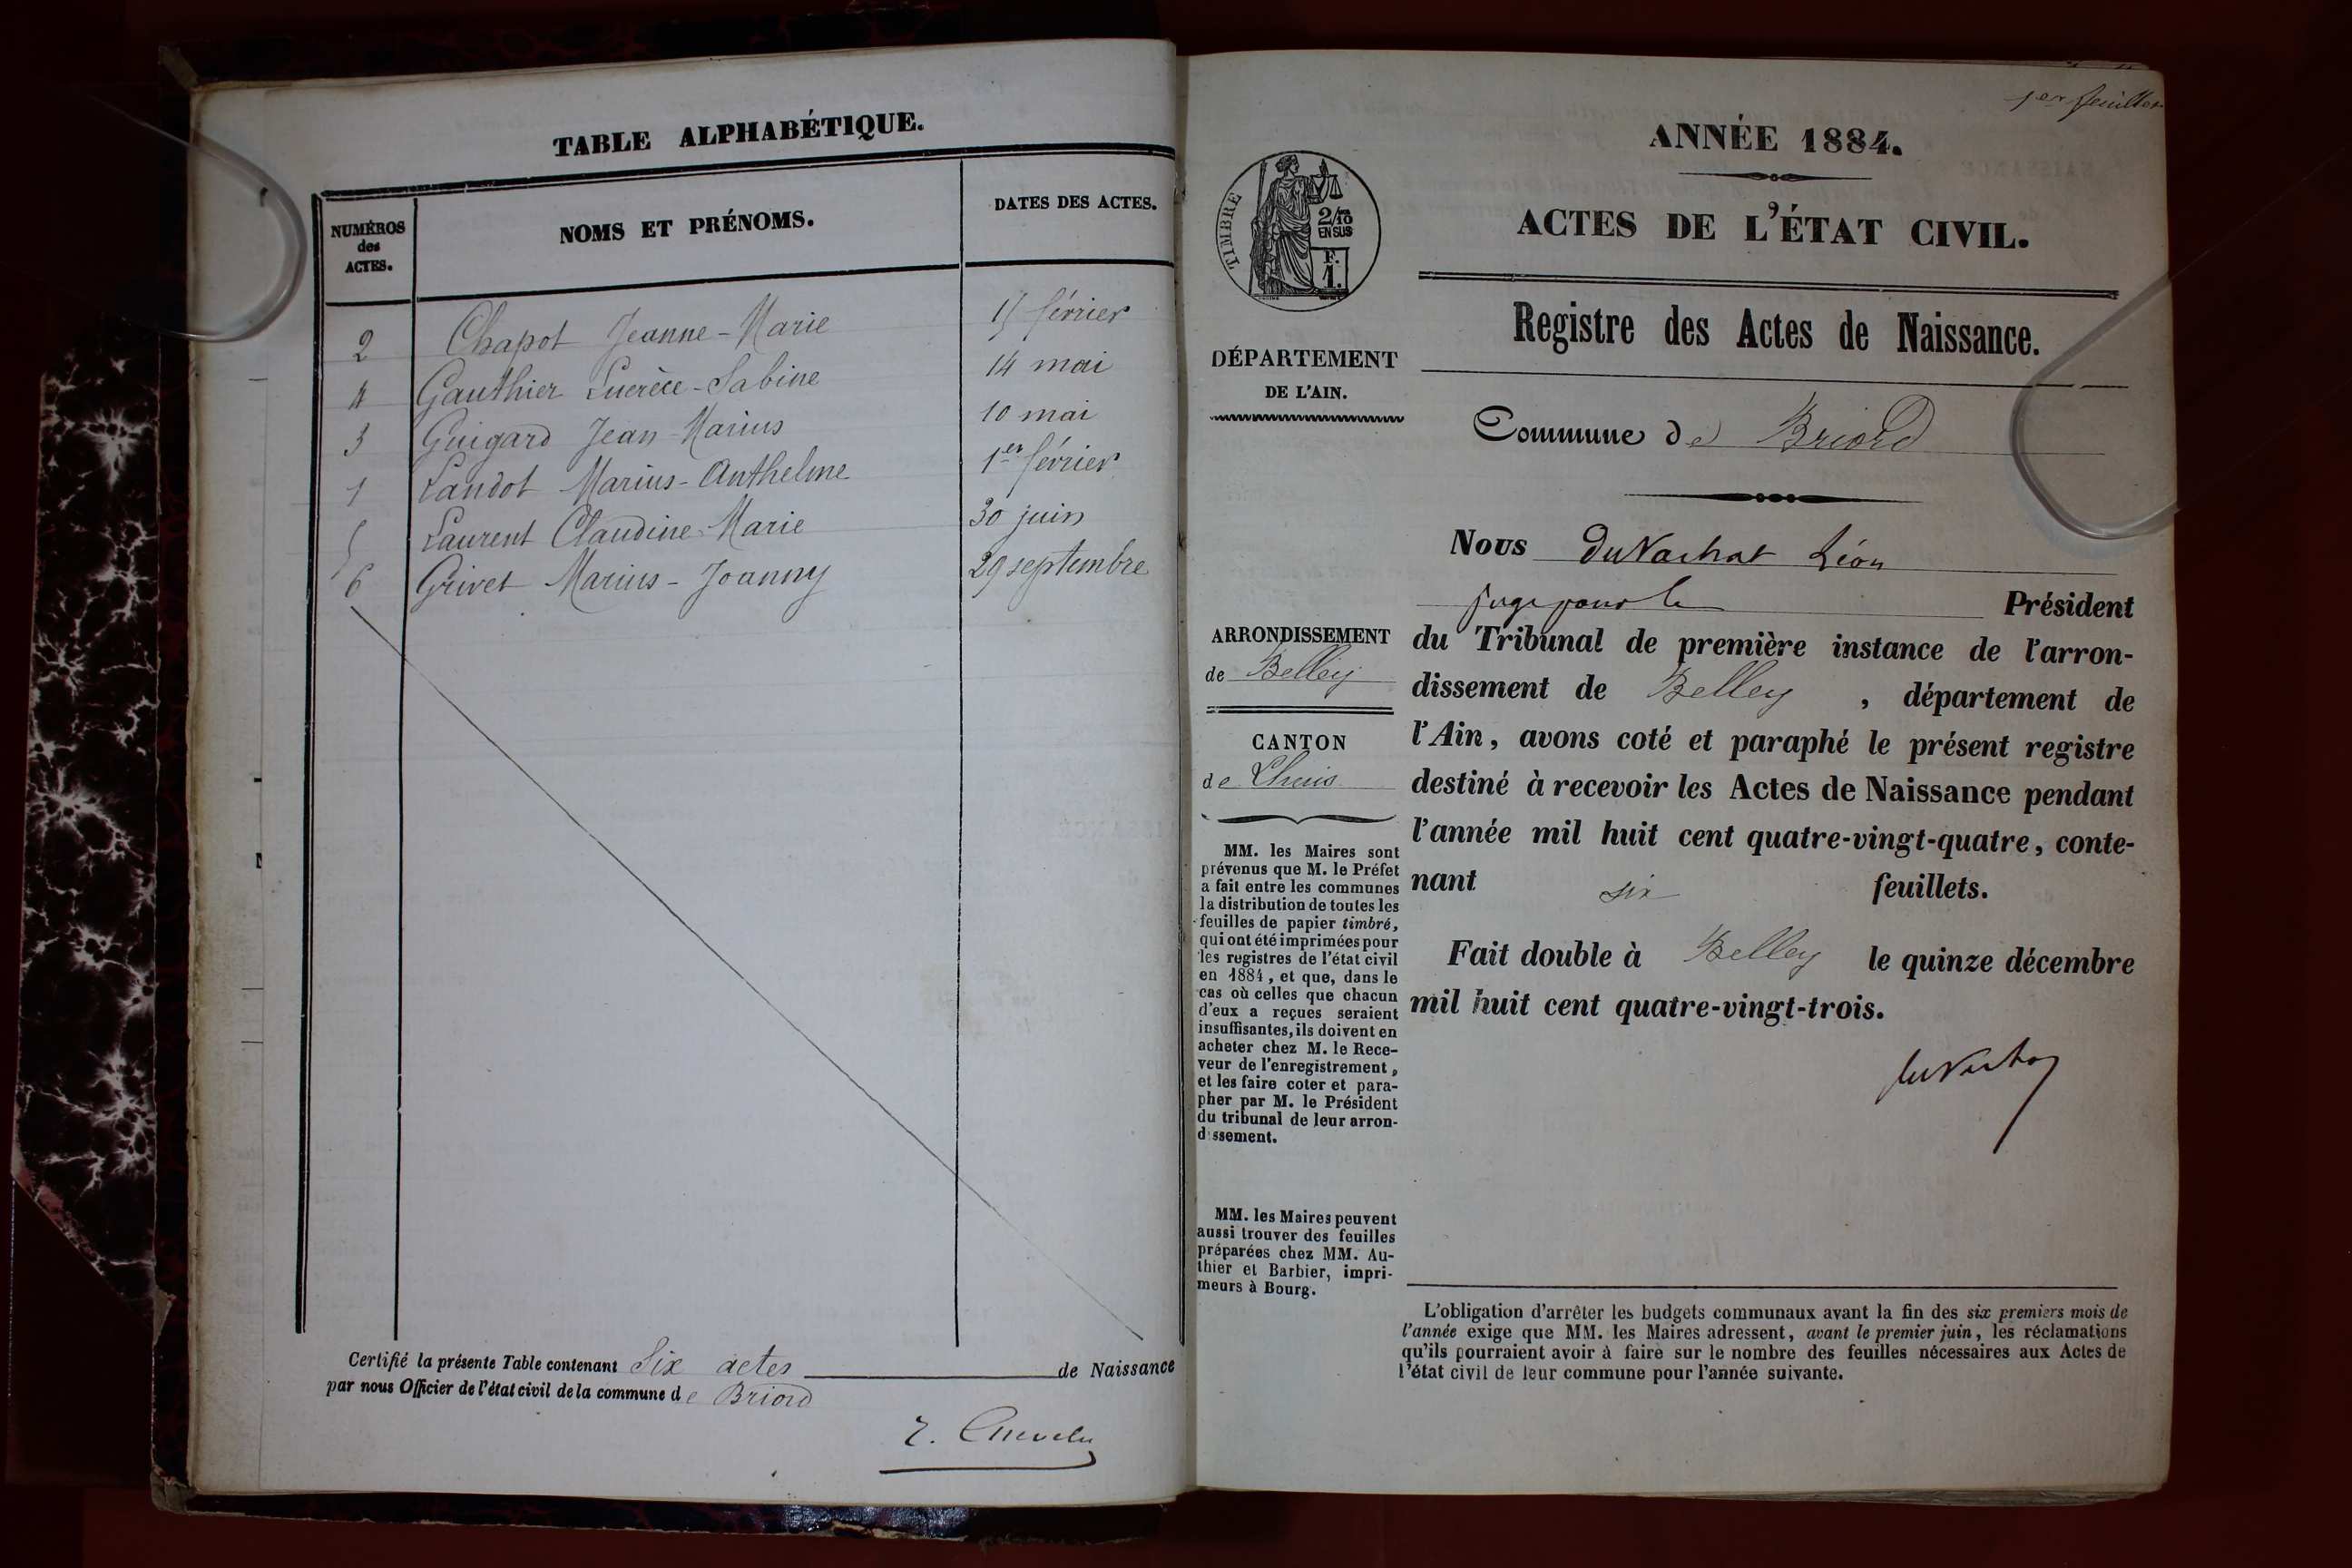 TABLE ALPHABÉTIQUE.
NUMÉROS
des
ACTES.
NOMS ET PRÉNOMS.
DATES DES ACTES.
2 Chapot Jeanne-Marie 15 février
4 Gauthier Lucrèce-Sabine 14 mai
3 Guigard Jean-Marius 10 mai
1 Landot Marius-Anthelme 1er février
5 Laurent Claudine-Marie 30 juin
6 Grivet Marius-Joanny 29 septembre
Certifié la présente Table contenant Six actes de Naissance
par nous Officier de l'état civil de la commune de Briord
1er feuillet
ANNÉE 1884.
ACTES DE L'ÉTAT CIVIL.
TIMBRE
2/10
EN SUS
F.
1.
Registre des Actes de Naissance.
DÉPARTEMENT
DE L'AIN.
Commune de Briord
Nous DuVachat Léon
juge pour le Président
du Tribunal de première instance de l'arron-
dissement de Belley, département de
l'Ain, avons coté et paraphé le présent registre
destiné à recevoir les Actes de Naissance pendant
l'année mil huit cent quatre-vingt-quatre, conte-
nant six feuillets.
Fait double à Belley le quinze décembre
mil huit cent quatre-vingt-trois.
DuVachat
ARRONDISSEMENT
de Belley
CANTON
de Lhuis
MM. les Maires sont
prévenus que M. le Préfet
a fait entre les communes
la distribution de toutes les
feuilles de papier timbré,
qui ont été imprimées pour
les registres de l'état civil
en 1884, et que, dans le
cas où celles que chacun
d'eux a reçues seraient
insuffisantes, ils doivent en
acheter chez M. le Rece-
veur de l'enregistrement,
et les faire coter et para-
pher par M. le Président
du tribunal de leur arron-
dissement.
MM. les Maires peuvent
aussi trouver des feuilles
préparées chez MM. Au-
thier et Barbier, impri-
meurs à Bourg.
L'obligation d'arrêter les budgets communaux avant la fin des six premiers mois de
l'année exige que MM. les Maires adressent, avant le premier juin, les réclamations
qu'ils pourraient avoir à faire sur le nombre des feuilles nécessaires aux Actes de
l'état civil de leur commune pour l'année suivante.